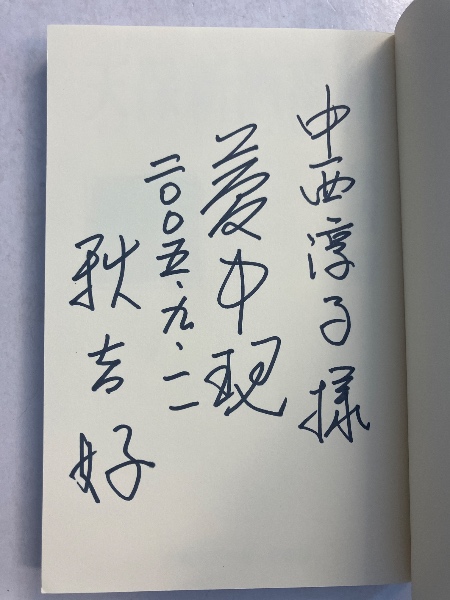 中西淳子様
夢中現
二〇〇五、九、二
秋吉好